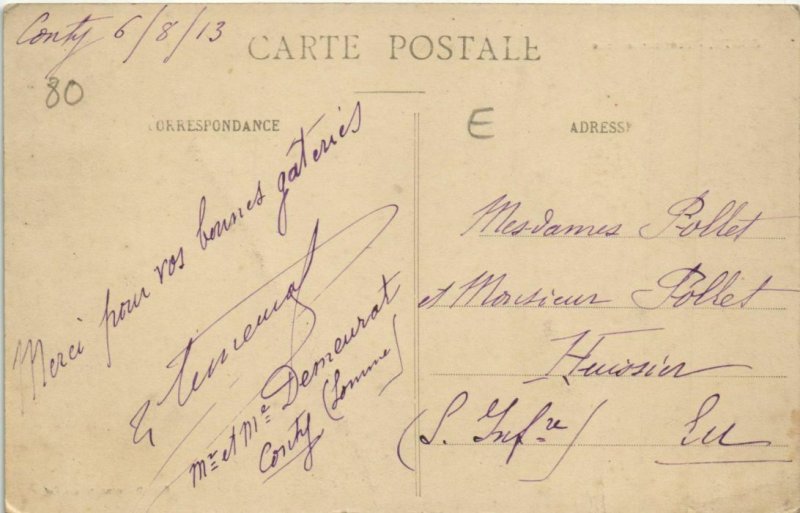 Conty 6/8/13
CARTE POSTALE
80
CORRESPONDANCE
E
ADRESSE
Merci pour vos bonnes gâteries
Mr et Me Demeurat
Conty (Somme)
Mesdames Pollet
et Monsieur Pollet
Huissier
(S. Infre) Eu